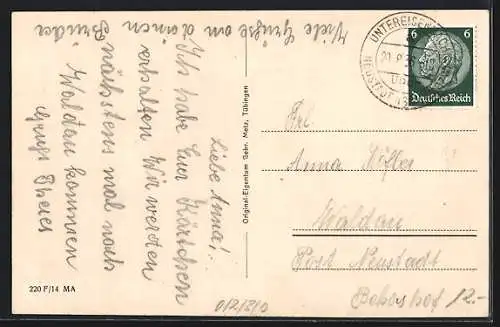 Liebe Anna!
Ich habe Euer Kärtchen
erhalten Wir werden
nächstens mal nach
Waldau kommen
Gruß
Viele Grüße an deinen
Bruder
Original-Eigentum Gebr. Metz, Tübingen
220 F/14 MA
UNTEREISEN
6 6
Deutsches Reich
Frl.
Anna
Waldau
Post Neustadt
12.-
012/810